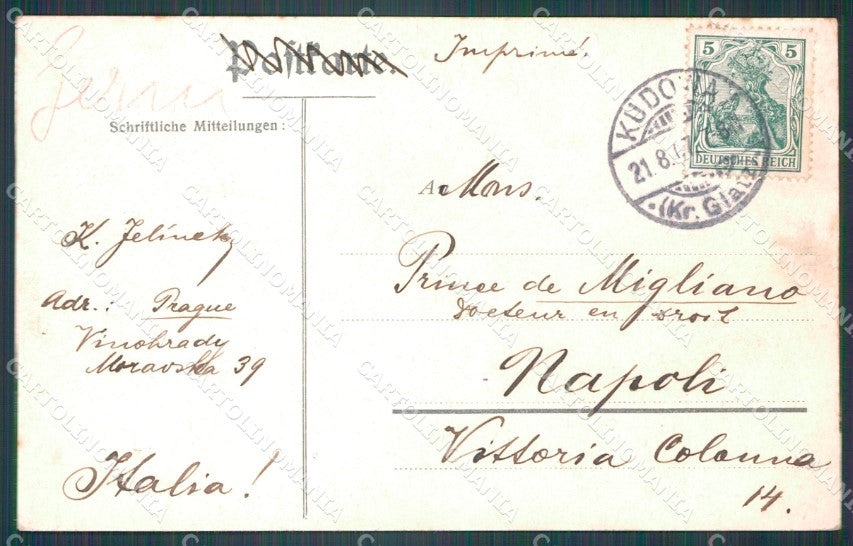 Postkarte.
Imprimé.
Schriftliche Mitteilungen:
K. Jelínek
Adr.: Prague
Vinohrady
Moravska 39
Italia!
A Mons.
Prince de Migliano
docteur en droit
Napoli
Vittoria Colonna
14.
5 5
DEUTSCHES REICH
KUDOWA
21.8.
(Kr. Glatz)
CARTOLINOMANIA